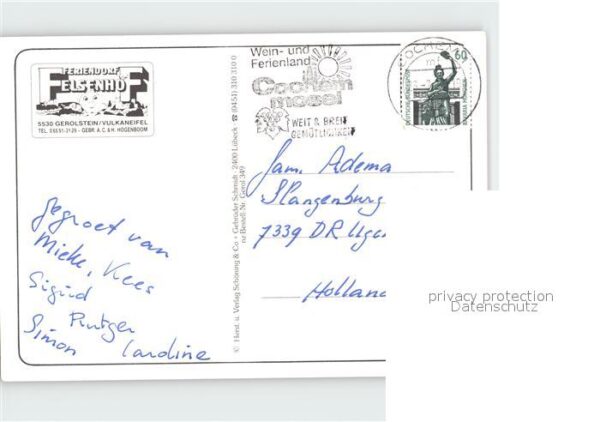 FERIENDORF
FELSENHOF
5530 GEROLSTEIN/VULKANEIFEL
TEL. 06591-3129 - GEBR. A.C. & H. HOGENBOOM
gegroet van
Mieke, Kees
Sigrid
Rutger
Simon Caroline
© Herst. u. Verlag Schöning & Co + Gebrüder Schmidt · 2400 Lübeck · ☎ (0451) 310 310 0
nr Bestell-Nr. Gerol 349
Wein- und
Ferienland
Cochem
mosel
WEIT & BREIT
GEMÜTLICHKEIT
COCHEM
60
DEUTSCHE BUNDESPOST
BAVARIA MÜNCHEN
Fam. Adema
Slangenburg
7339 DR Ugc
Holland
privacy protection
Datenschutz